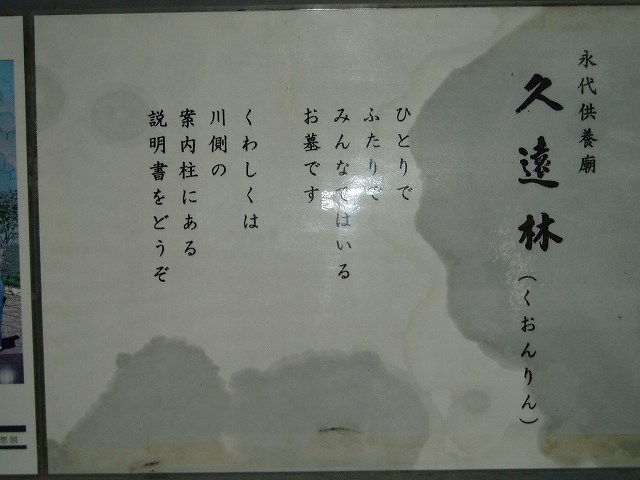 永代供養廟
久遠林（くおんりん）
ひとりで
ふたりで
みんなではいる
お墓です
くわしくは
川側の
案内柱にある
説明書をどうぞ